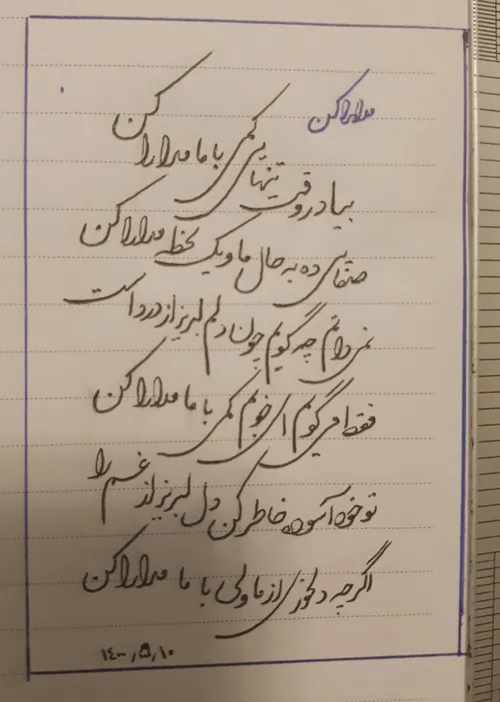 مدارا کن
بیا در وقت تنهایی کمی با ما مدارا کن
صفایی ده به حال ما و یک لحظه مدارا کن
نمی دانم چه گویم چون دلم لبریز از درد است
فقط می گویم ای خوبم کمی با ما مدارا کن
تو خود آسوده خاطر کن دل لبریز از غم را
اگر چه دلخوری از ما ولی با ما مدارا کن
۱۴۰۰٫۵٫۱۰